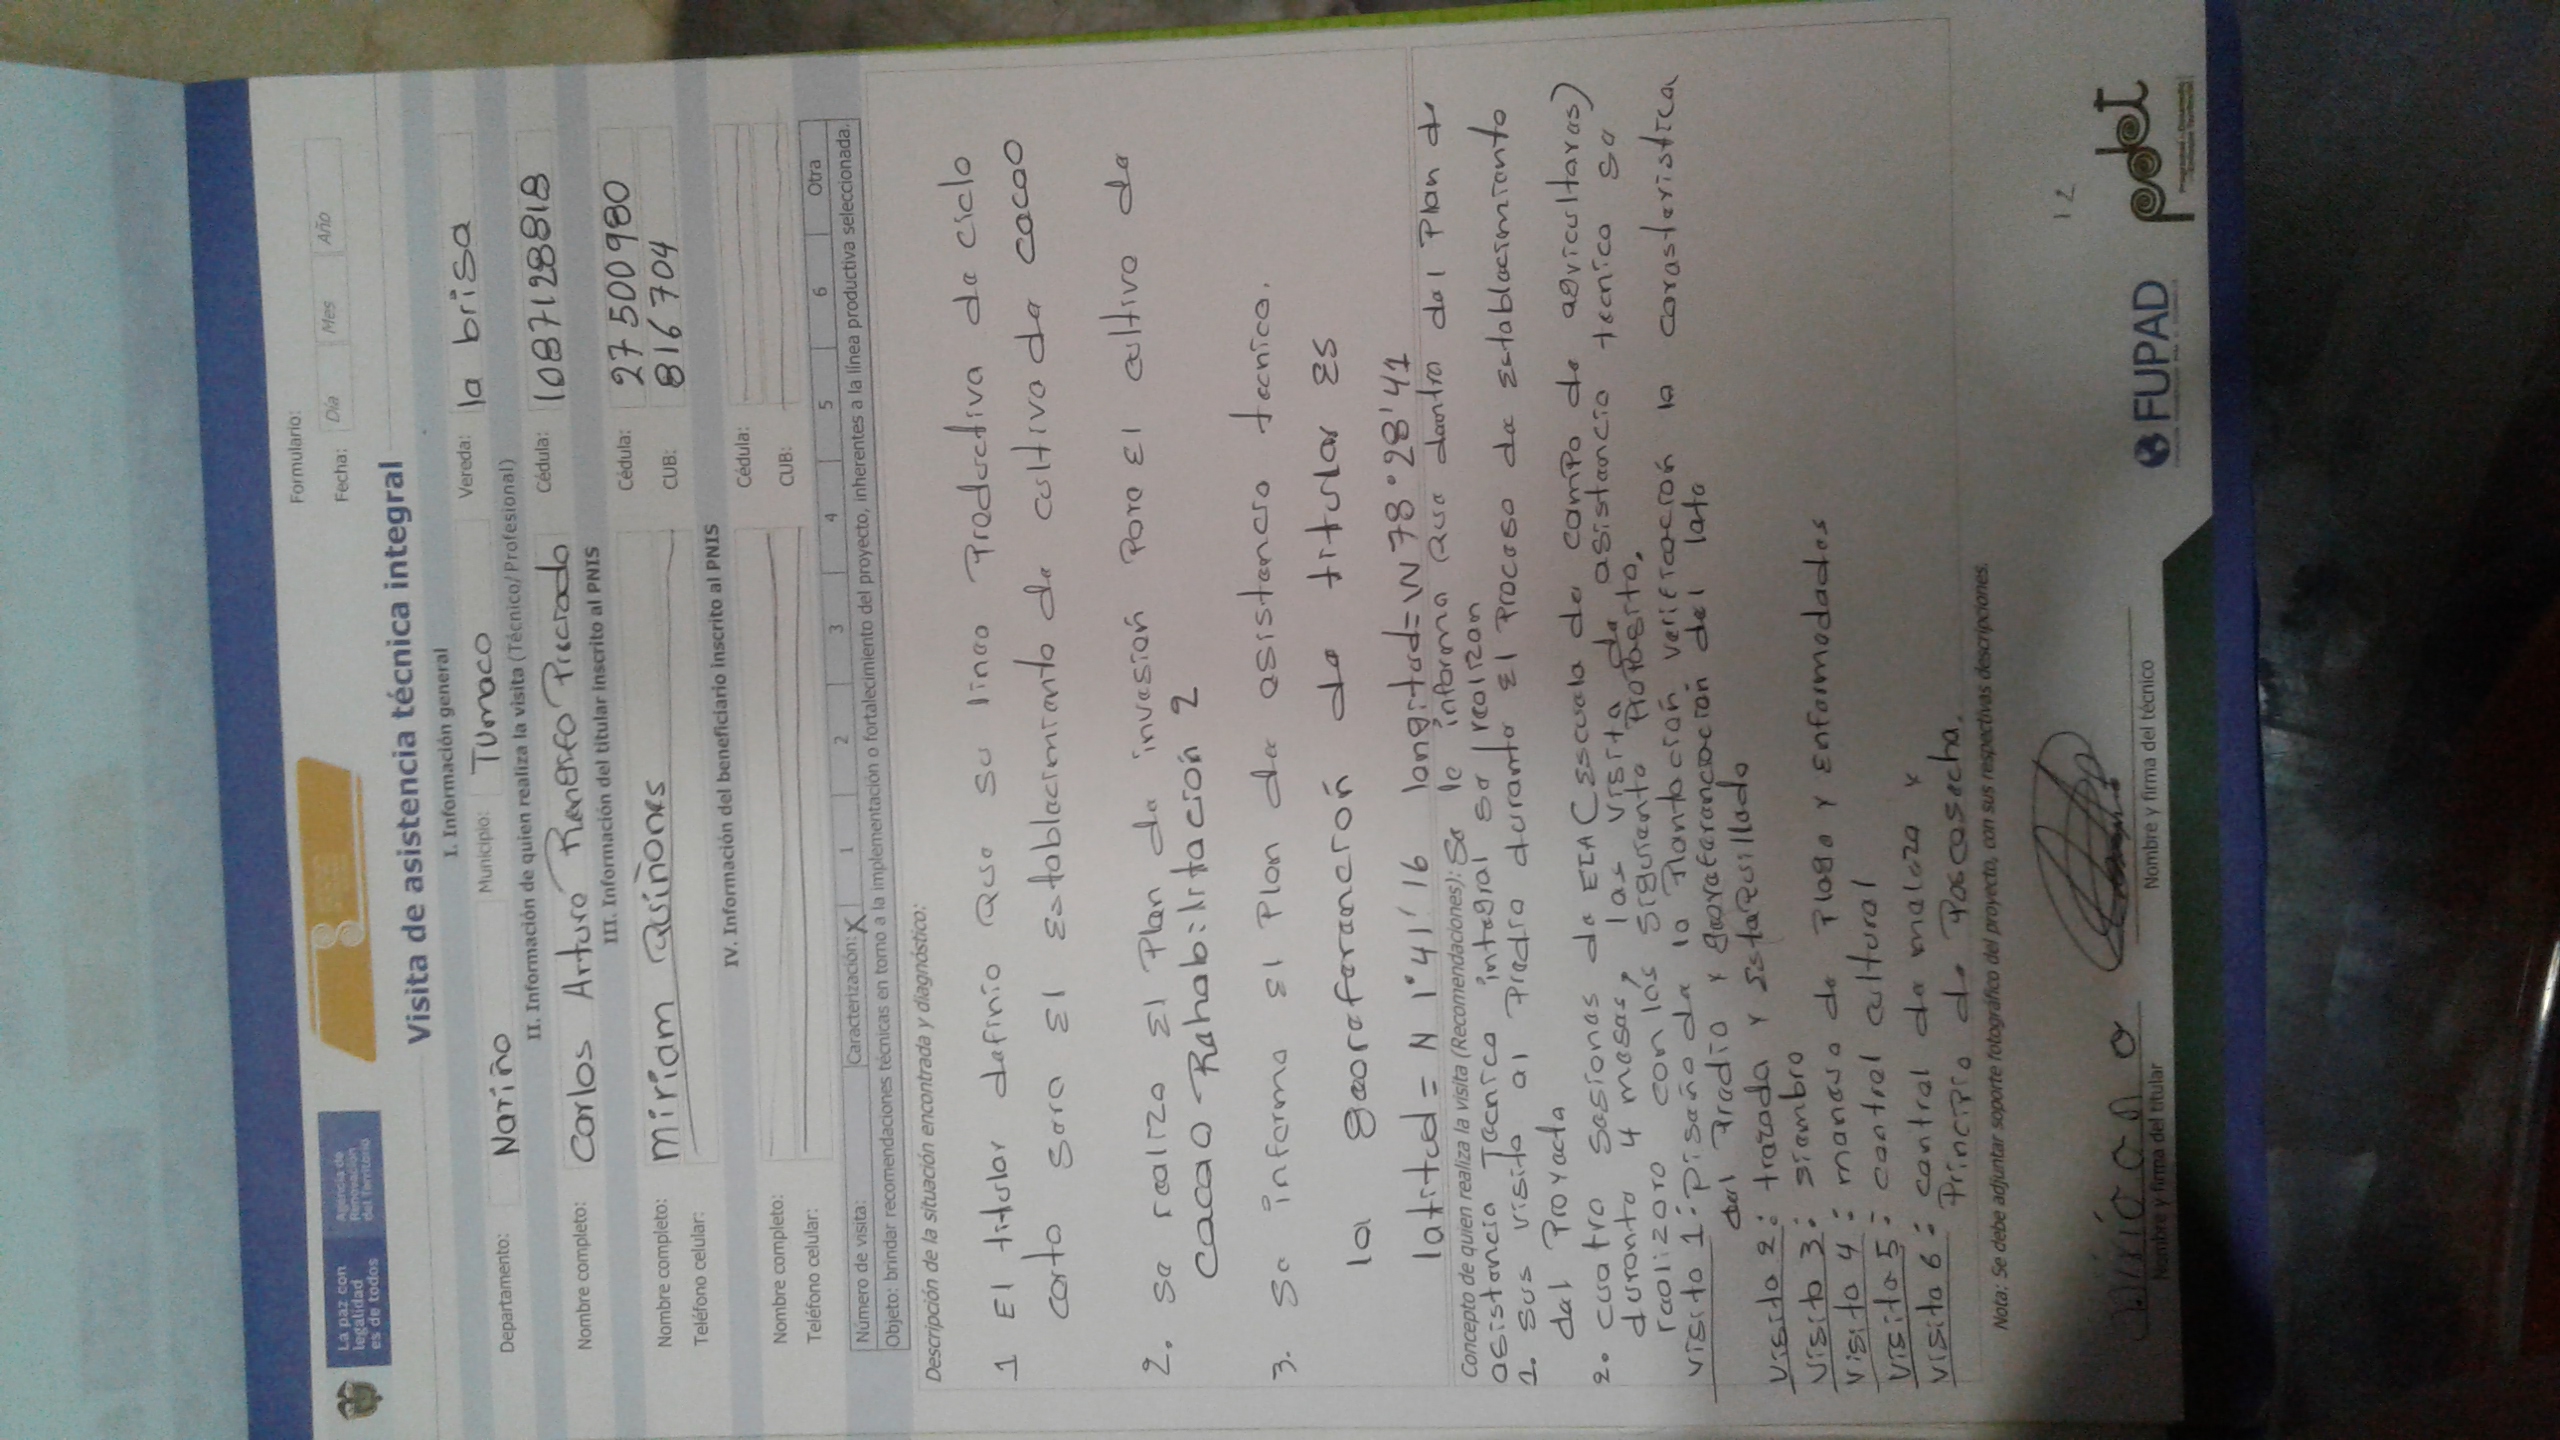 La paz con
legalidad
es de todos
Agencia de
Renovación
del Territorio
Formulario:
Fecha: Día Mes Año
Visita de asistencia técnica integral
I. Información general
Departamento: Nariño Municipio: Tumaco Vereda: la brisa
II. Información de quien realiza la visita (Técnico/Profesional)
Nombre completo: Carlos Arturo Renerfo Preciado Cédula: 1087128818
III. Información del titular inscrito al PNIS
Nombre completo: miriam Quiñones Cédula: 27500980
Teléfono celular: CUB: 816704
IV. Información del beneficiario inscrito al PNIS
Nombre completo: Cédula:
Teléfono celular: CUB:
Número de visita: Caracterización: X 1 2 3 4 5 6 Otra
Objeto: brindar recomendaciones técnicas en torno a la implementación o fortalecimiento del proyecto, inherentes a la línea productiva seleccionada.
Descripción de la situación encontrada y diagnóstico:
1 El titular definio Que su linea Productiva de ciclo
corto sera El Establecimiento de cultivo de cacao
2. se realizo El Plan de invasión Para El cultivo de
cacao Rehabilitación 2
3. se informo El Plan de asistencia tecnica.
la georeferencion de titular Es
latitud = N 1°41'16 longitud = W 78°28'41
Concepto de quien realiza la visita (Recomendaciones): Se le informa Que dentro del Plan de
asistencia Tecnica integral se realizan
1. sus visita al Predio durante El Proceso de Establecimiento
del Proyecta
2. cuatro sesiones de ECA (Escuela de campo de agricultores)
durante 4 meses, las visita de asistencia tecnica se
realizara con los siguiente Proposito,
visita 1: Diseño de la Plantación verificación la carasteristica
del Predio y georeferenciación del lote
visita 2: trazado y Estaquillado
visita 3: siembra
visita 4: manejo de Plaga y Enfermedades
visita 5: control cultural
visita 6: control de maleza y
Principio de Poscosecha.
Nota: Se debe adjuntar soporte fotográfico del proyecto, con sus respectivas descripciones.
12
Nombre y firma del titular
Nombre y firma del técnico
FUPAD
pdet